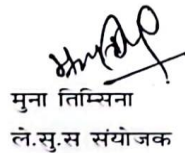 मुना तिम्सिना
ले.सु.स संयोजक